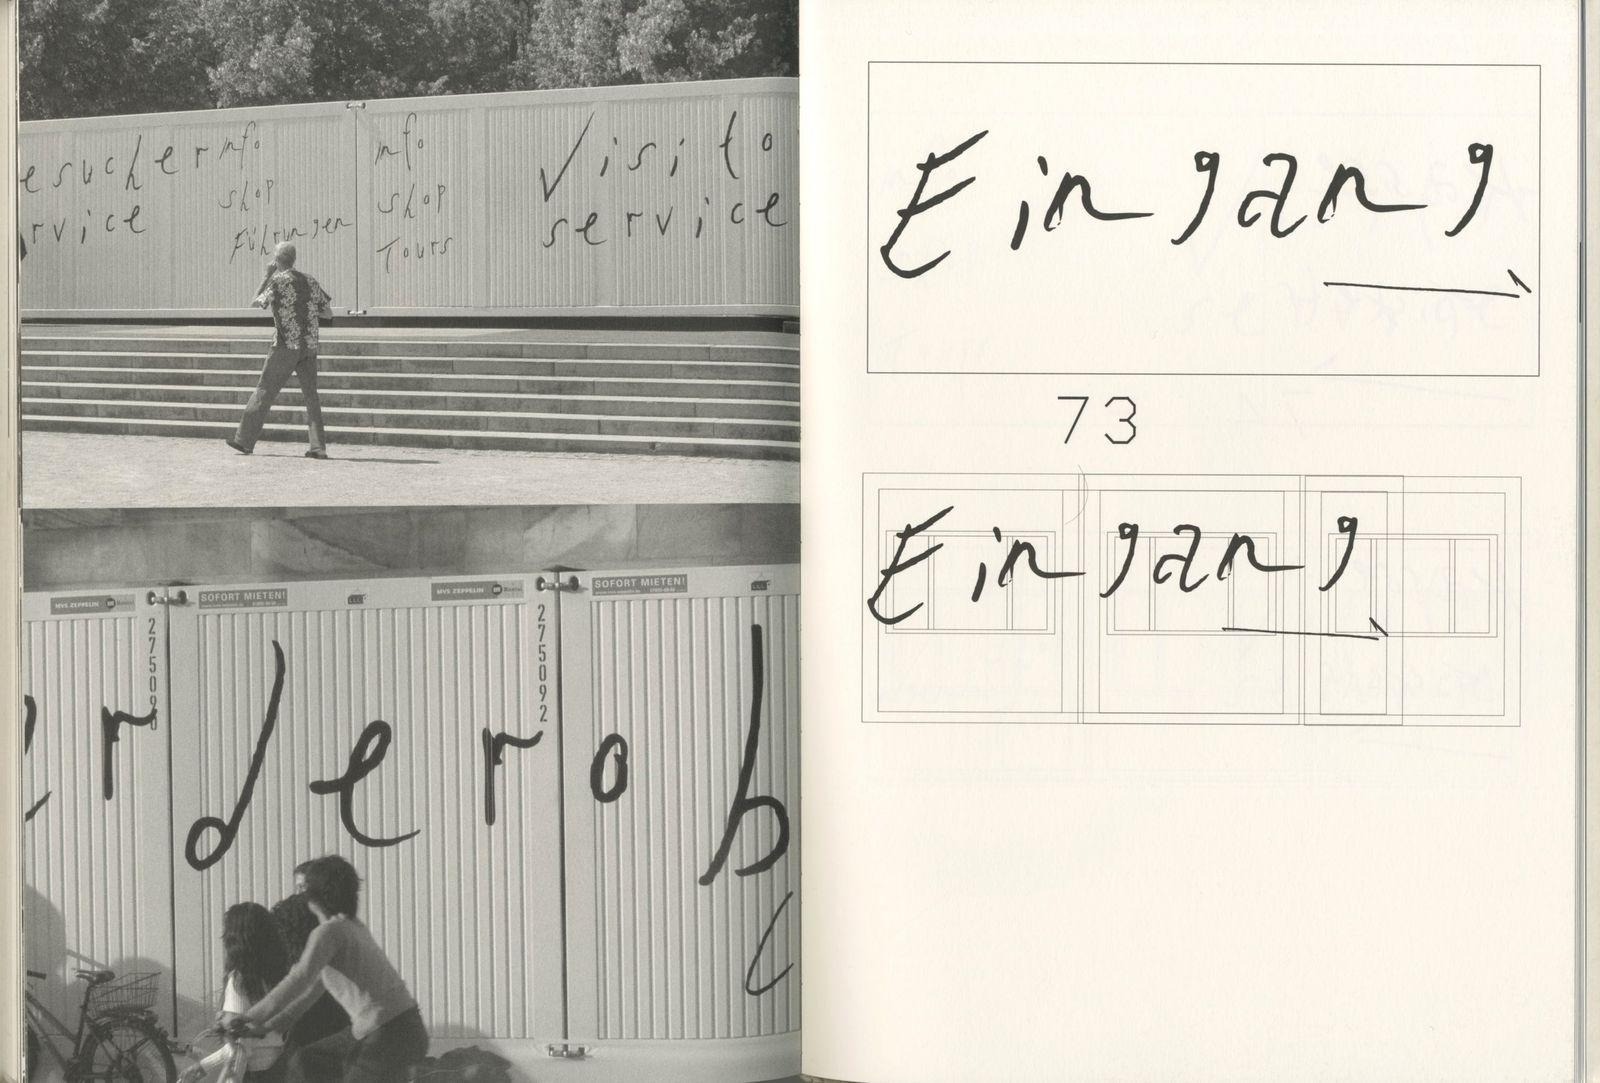 esucher
rvice
info
shop
Führungen
info
shop
Tours
Visito
service
MVS ZEPPELIN
SOFORT MIETEN!
MVS ZEPPELIN
SOFORT MIETEN!
275092
erderob
Eingang
73
Eingang